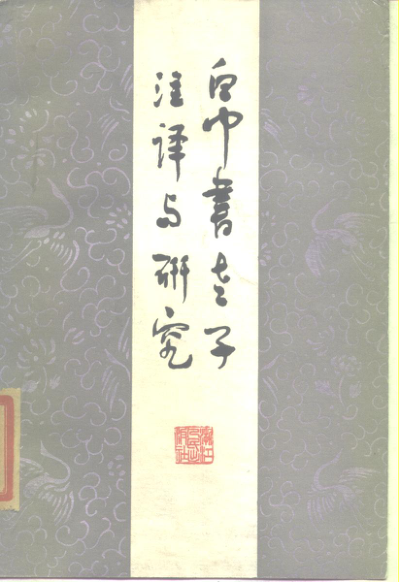 帛书老子
注译与研究